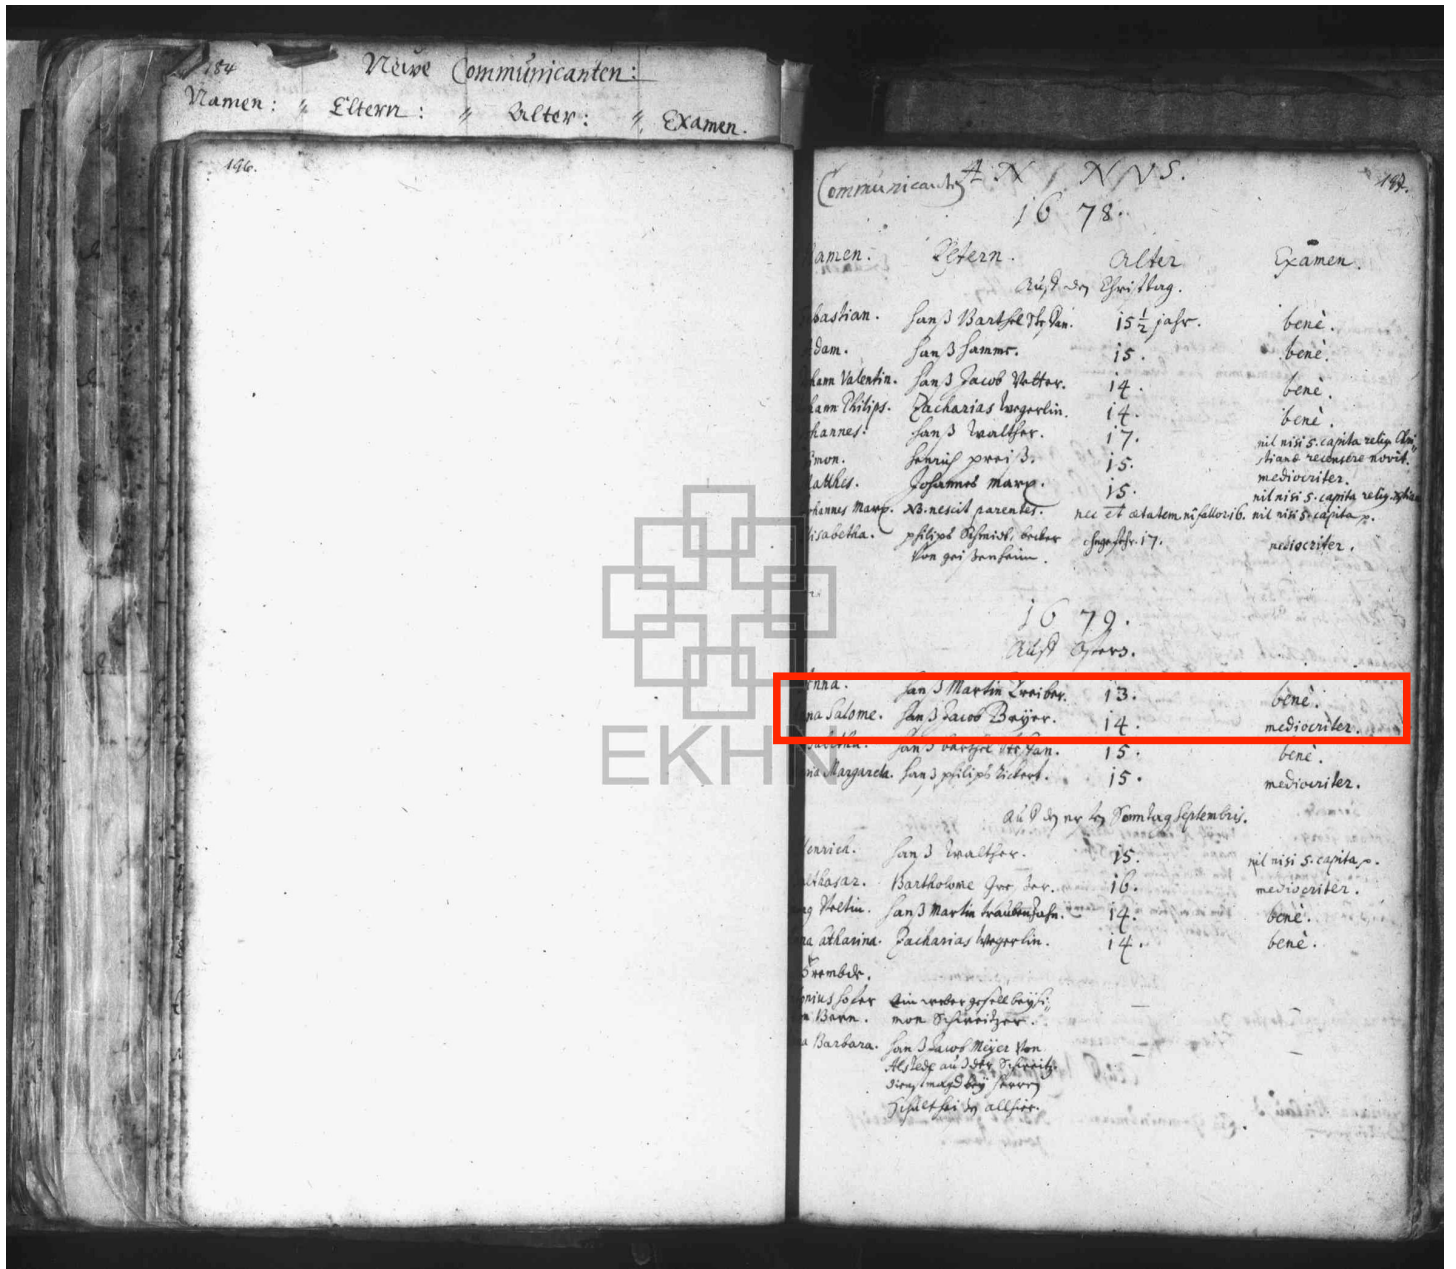 184
Neüe Communicanten:
Namen: " Eltern: " Alter: " Examen.
196.
Communicantes ANNUS. 197.
1678.
amen. Eltern. Alter Examen.
Auff den Christtag.
bastian. Hanß Barthel Stephan. 15 1/2 jahr. benè.
dam. Hanß Hamms. 15. benè.
hann Valentin. Hanß Jacob Vetter. 14. benè.
hann Philips. Zacharias Wegerlin. 14. benè.
hannes: Hanß Walther. 17. nil nisi 5. capita relig. Chri-
imon. Henrich preiß. 15. stianæ recensere novit.
atthes. Johannes marx. 15. mediocriter.
nil nisi 5. capita relig.
hannes Marx. NB. nescit parentes. nec et ætatem ni fallor 16. nil nisi 5. capita p.
lisabetha. philips Schmidt, becker ohngefehr. 17. mediocriter.
von geißenheim.
1679.
Auff Ostern.
nna. Hanß Martin Treiber. 13. benè.
na Salome. Hanß Jacob Beÿer. 14. mediocriter.
sabetha. Hanß barthel Stephan. 15. benè.
ria Margareta. Hanß philips Eickert. 15. mediocriter.
auff den Sonntag Septembris.
enrich. Hanß Walther. 15. nil nisi 5. capita p.
althasar. Bartholome 16. mediocriter.
rg Veltin. Hanß Martin traubenhahn. 14. benè.
na atharina. Zacharias Wegerlin. 14. benè.
frembde.
nius hofer Ein weber gesell beÿ Si-
n Bern. mon Schweitzer.
a Barbara. Hanß Jacob Meÿer von
Alstede auß der Schweitz.
dienstmagd beÿ Herren
Schultheißen allhier.
EKHN